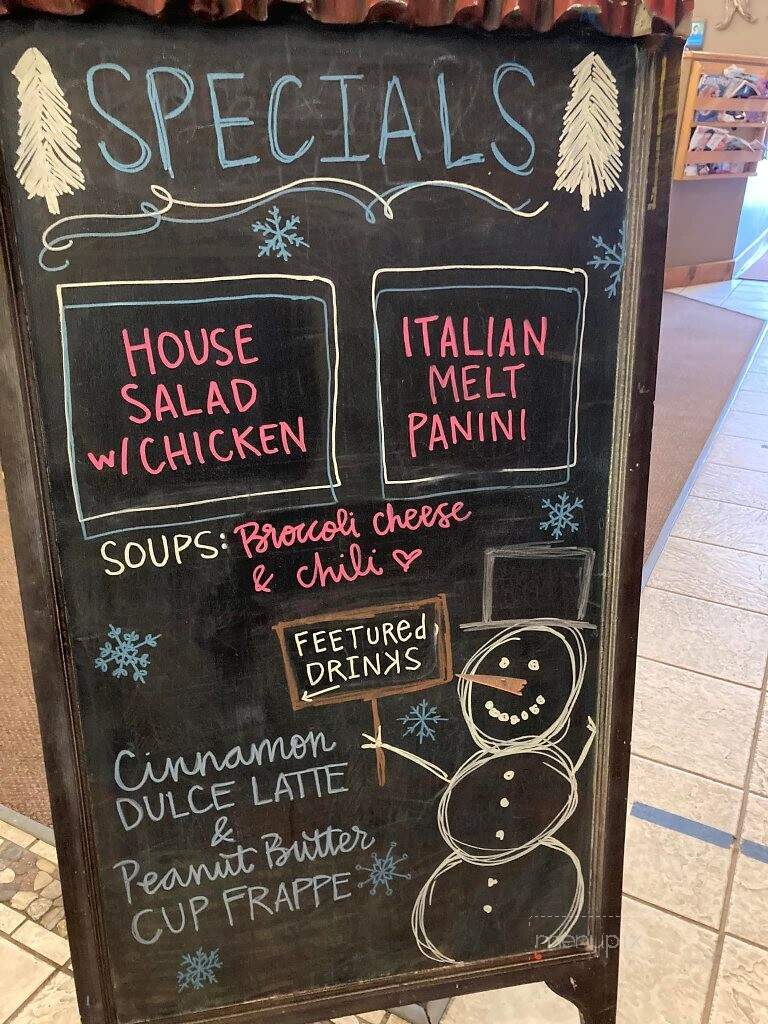 SPECIALS
HOUSE
SALAD
w/CHICKEN
ITALIAN
MELT
PANINI
SOUPS: Broccoli cheese
& chili ♡
FEETURed
DRINKS
Cinnamon
DULCE LATTE
&
Peanut Butter
CUP FRAPPE
menupix